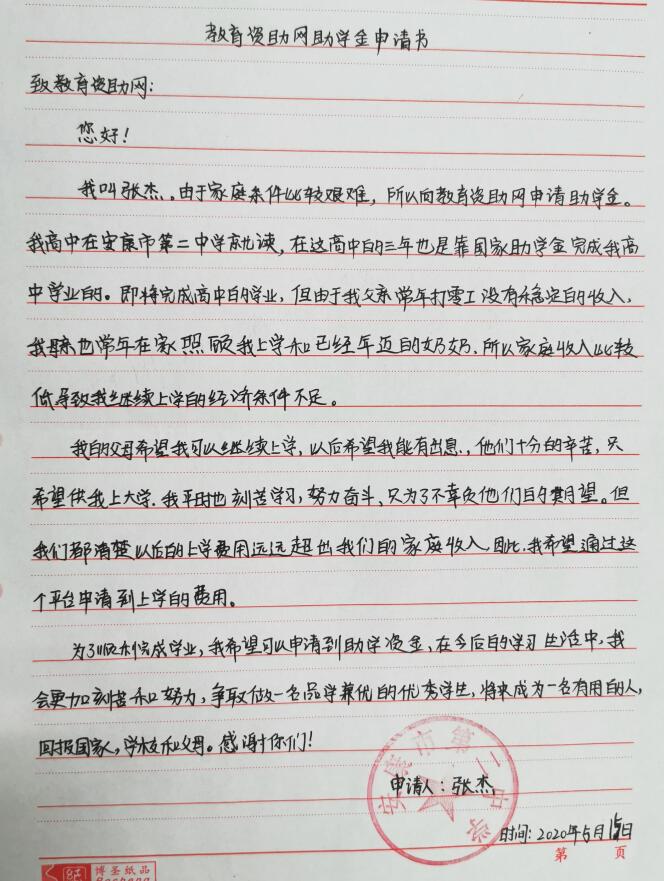 教育资助网助学金申请书
致教育资助网:
您好!
我叫张杰。由于家庭条件比较艰难,所以向教育资助网申请助学金。
我高中在安康市第二中学就读,在这高中的三年也是靠国家助学金完成我高
中学业的。即将完成高中的学业,但由于我父亲常年打零工没有稳定的收入,
我母亲也常年在家照顾我上学和已经年迈的奶奶.所以家庭收入比较
低导致我继续上学的经济条件不足。
我的父母希望我可以继续上学,以后希望我能有出息.,他们十分的辛苦,只
希望供我上大学.我平时也刻苦学习,努力奋斗,只为了不辜负他们的期望。但
我们都清楚以后的上学费用远远超出我们的家庭收入.因此.我希望通过这
个平台申请到上学的费用。
为了顺利完成学业,我希望可以申请到助学资金,在今后的学习生活中,我
会更加刻苦和努力,争取做一名品学兼优的优秀学生,将来成为一名有用的人,
回报国家,学校和父母。感谢你们!
安康市第二中学
申请人:张杰
时间:2020年5月15日
第 页
博圣纸品